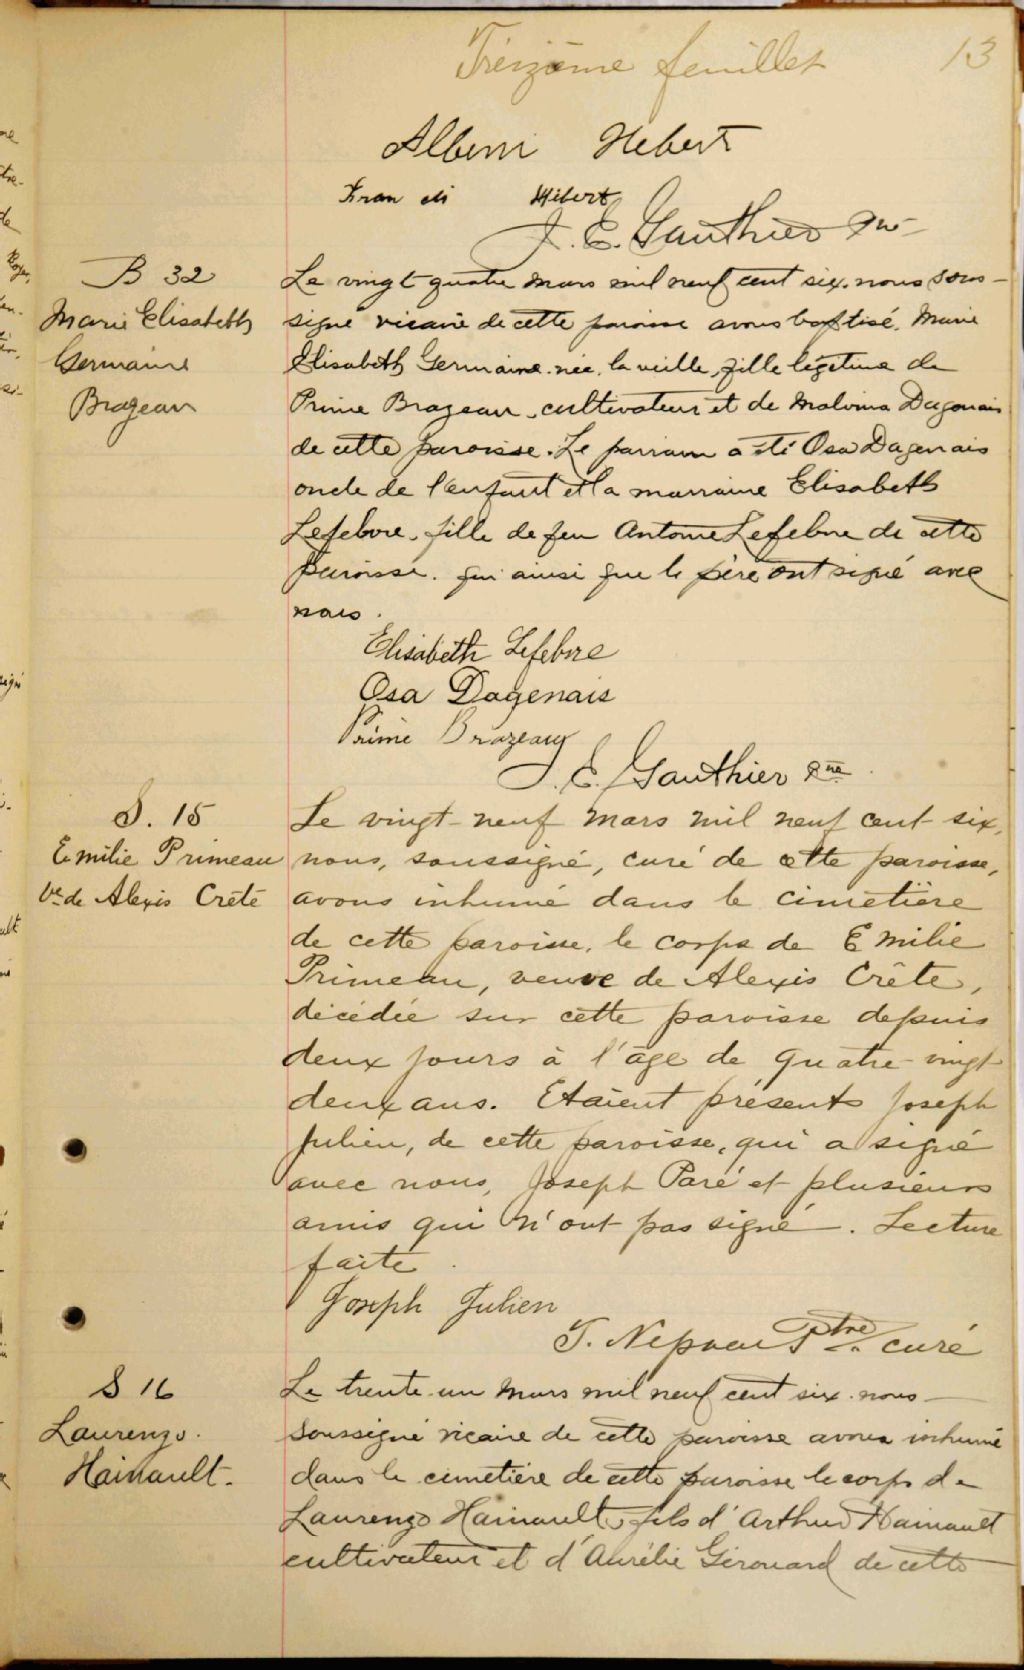 Treizième feuillet 13
Alberni Hebert
Hébert
J. E. Gauthier Ptre
B 32
Marie Elisabeth
Germaine
Brazeau
Le vingt quatre mars mil neuf cent six. nous sous-
signé vicaire de cette paroisse avons baptisé. Marie
Elisabeth Germaine. née, la veille, fille légitime de
Prime Brazeau, cultivateur et de Malvina Dagenais
de cette paroisse. Le parrain a été Osa Dagenais
oncle de l'enfant et la marraine Elisabeth
Lefebvre, fille de feu Antoine Lefebvre de cette
paroisse. qui ainsi que le père ont signé avec
nous.
Elisabeth Lefebvre
Osa Dagenais
Prime Brazeau
J. E. Gauthier Ptre
S. 15
Emilie Primeau
Ve de Alexis Crête
Le vingt-neuf mars mil neuf cent six,
nous, soussigné, curé de cette paroisse,
avons inhumé dans le cimetière
de cette paroisse, le corps de Emilie
Primeau, veuve de Alexis Crête,
décédée sur cette paroisse depuis
deux jours à l'âge de quatre-vingt
deux ans. Etaient présents Joseph
Julien, de cette paroisse, qui a signé
avec nous, Joseph Paré et plusieurs
amis qui n'ont pas signé. Lecture
faite.
Joseph Julien
T. Nepveu Ptre curé
S 16
Laurenzo.
Hainault.
Le trente-un mars mil neuf cent six. nous
soussigné vicaire de cette paroisse avons inhumé
dans le cimetière de cette paroisse le corps de
Laurenzo Hainault, fils d'Arthur Hainault
cultivateur et d'Aurélie Girouard de cette